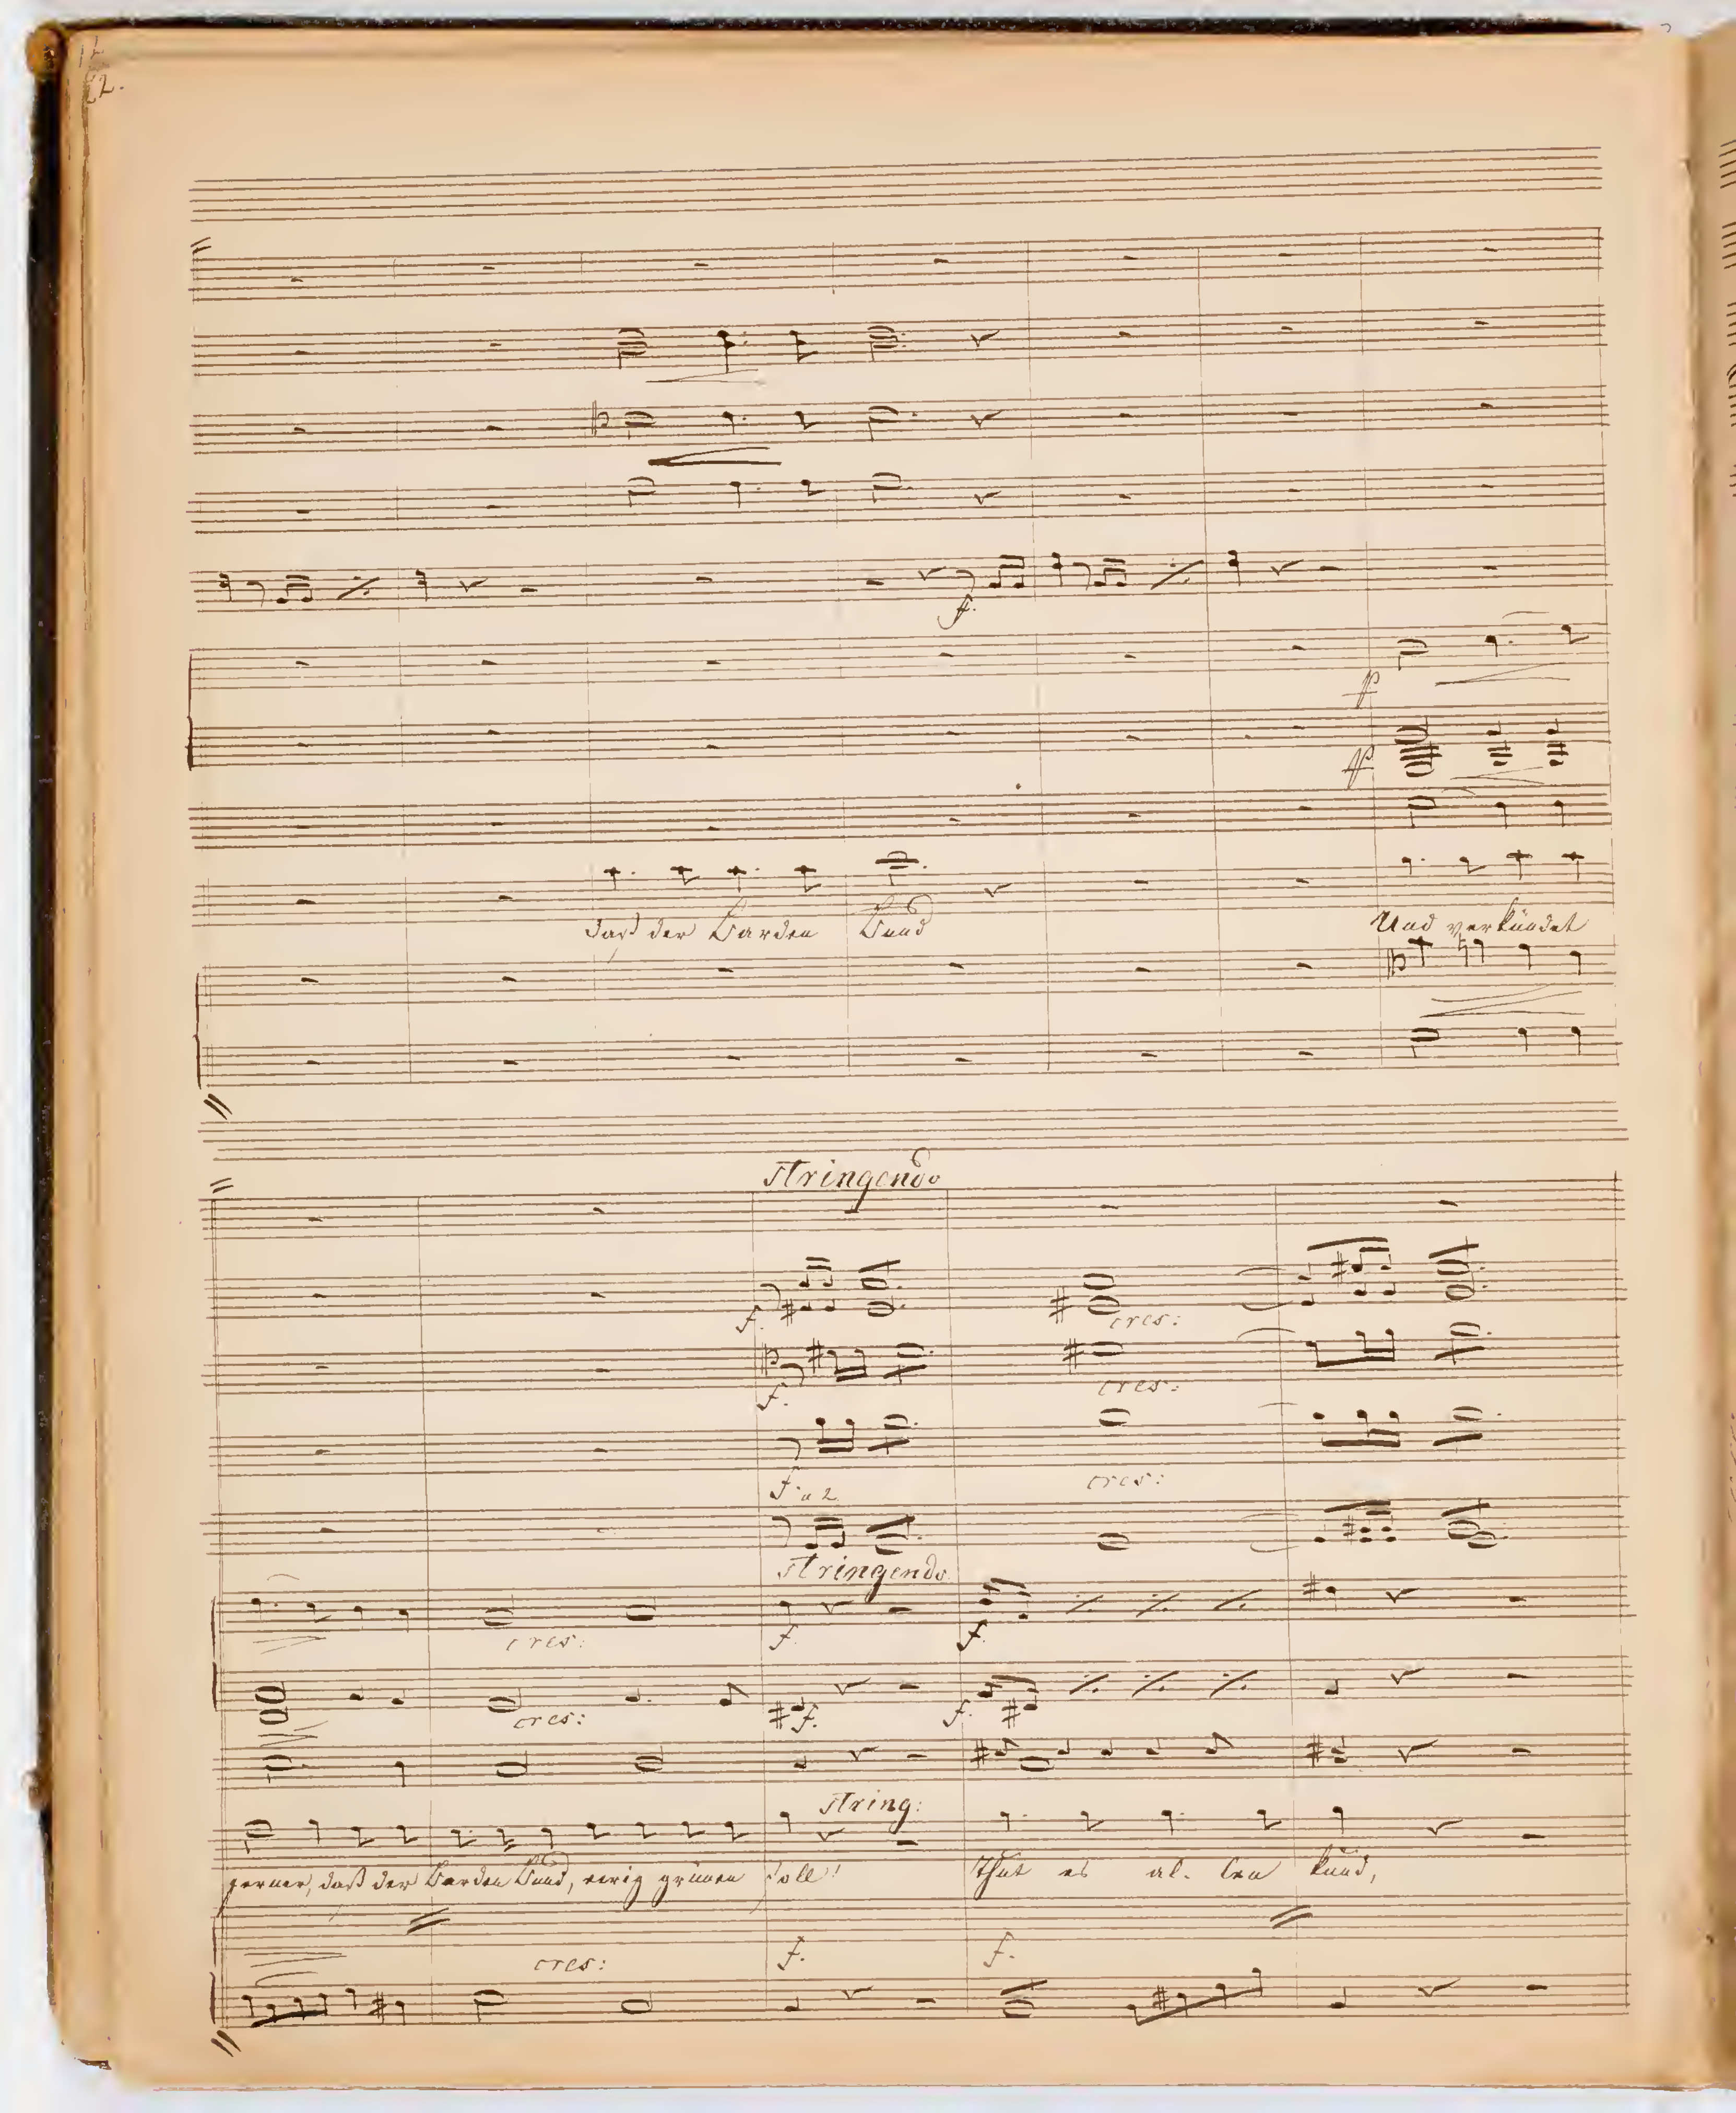 12.
f.
f
f
daß der Barden Bund
Und verkündet
Stringendo
f.
cres:
f.
cres:
f. a 2
cres:
Stringendo
cres:
f.
f.
cres:
f.
f.
String:
ferner, daß der Barden Bund, ewig grünen soll!
Thut es al- len kund,
cres:
f.
f.